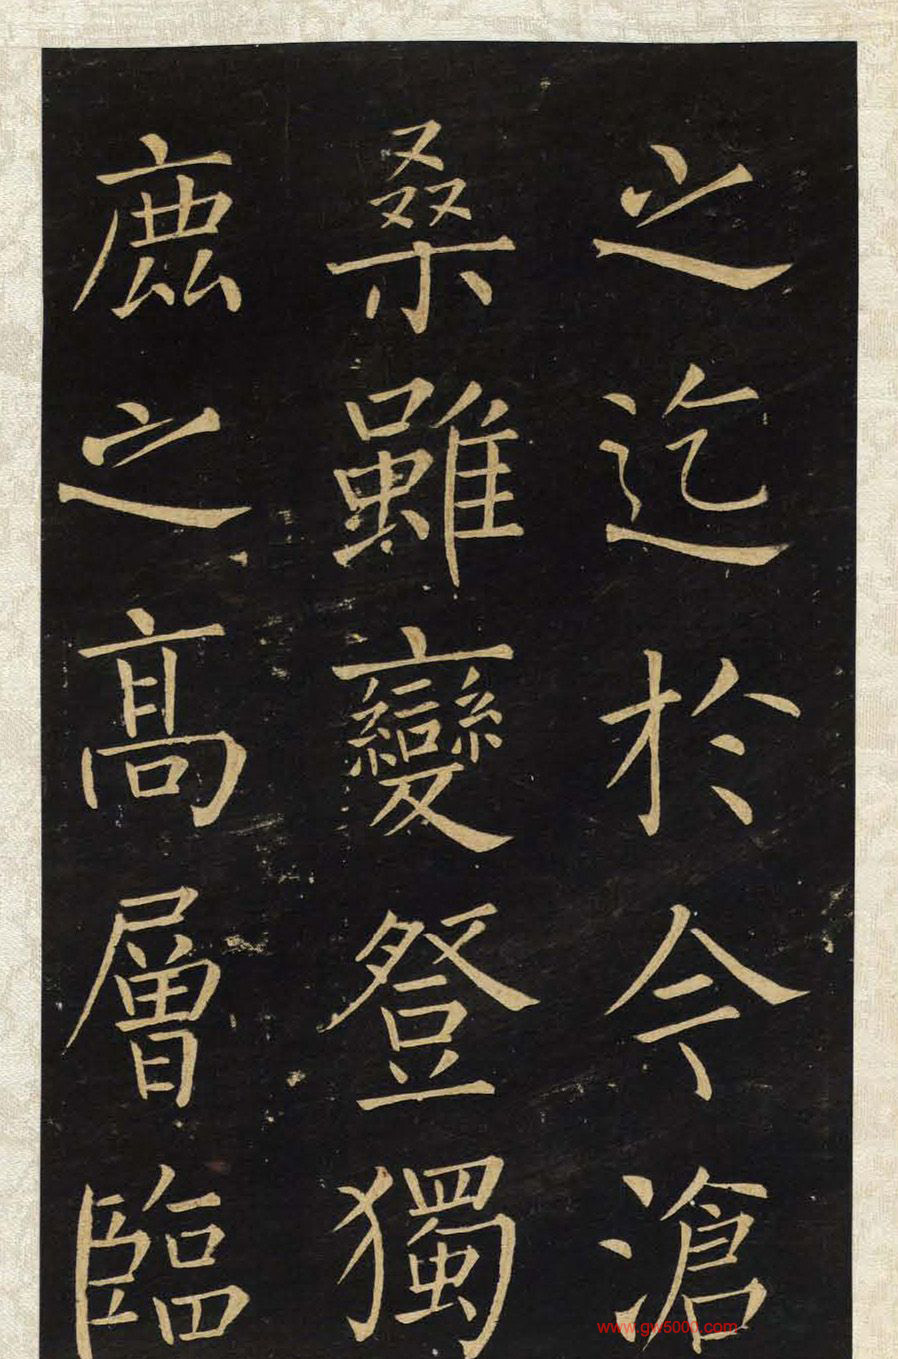 之迄於今滄
桑雖變登獨
鹿之髙層臨
www.gw5001.com